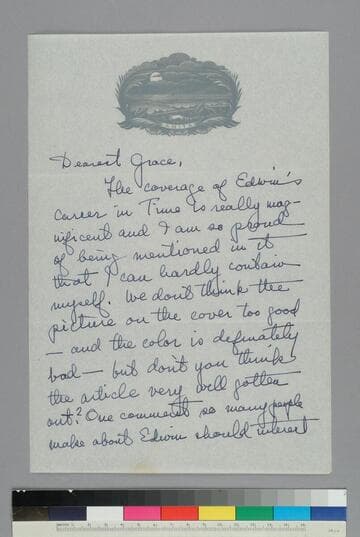 Dearest Grace,
The coverage of Edwin's
career in Time is really mag-
nificent and I am so proud
of being mentioned in it
that I can hardly contain
myself. We don't think the
picture on the cover too good
— and the color is definately
bad — but don't you think
the article very well gotten
out? One comment so many people
make about Edwin should interest